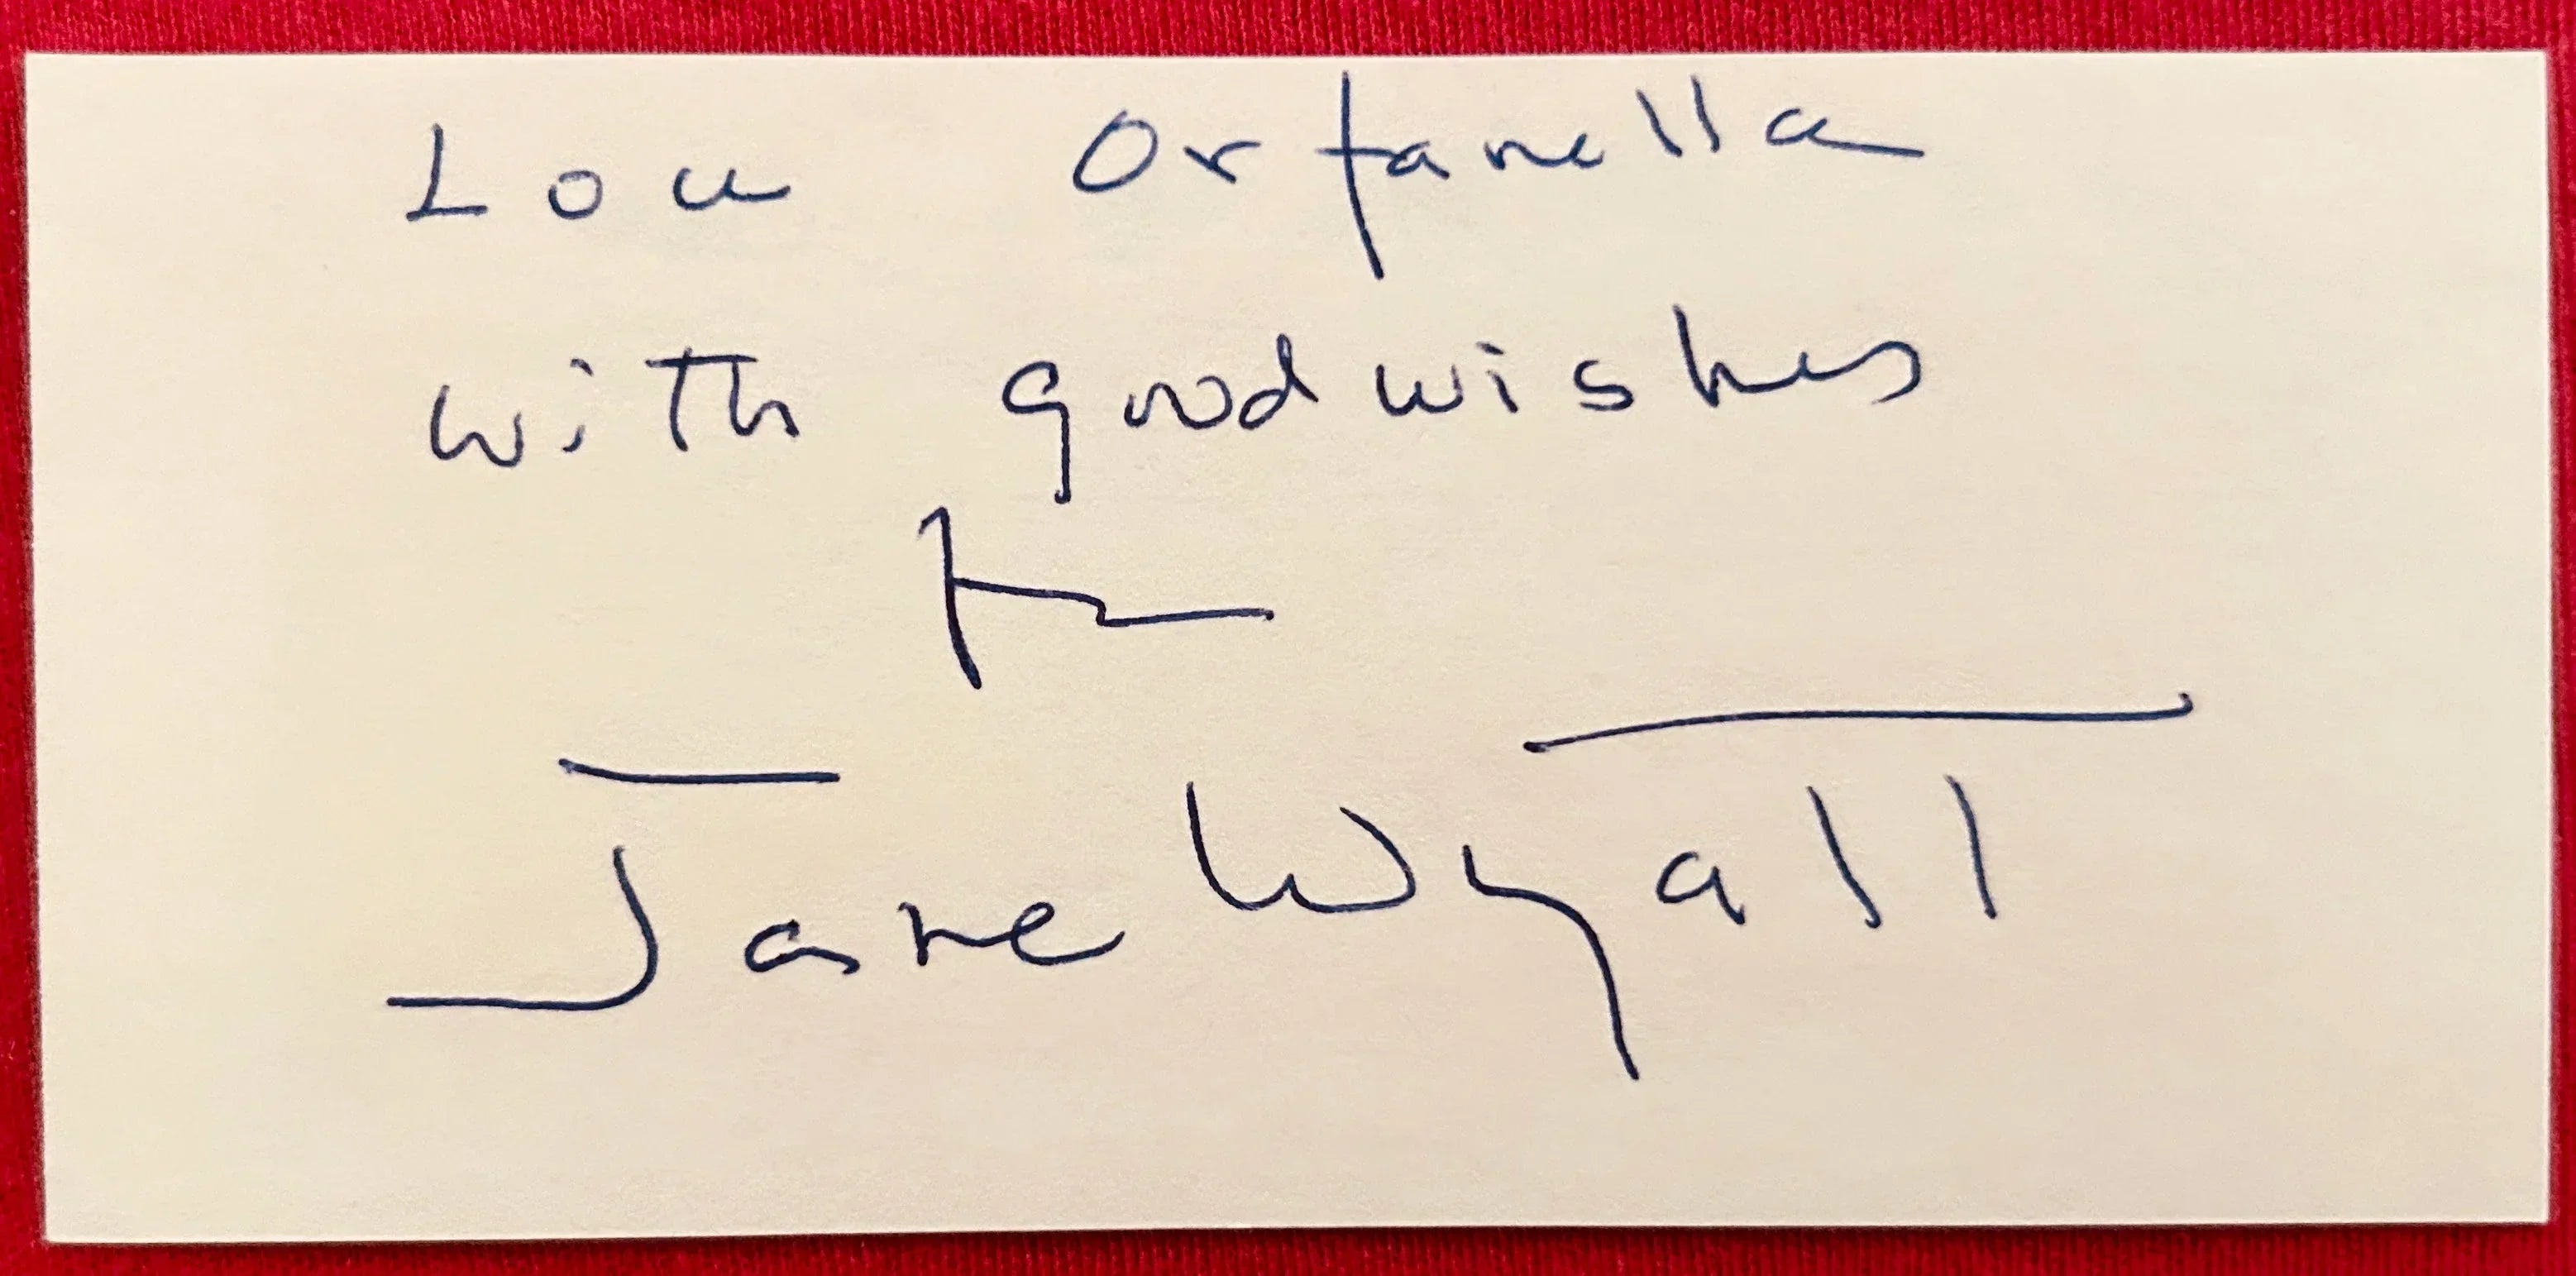 Lou Orfanella
with good wishes
Jane Wyatt